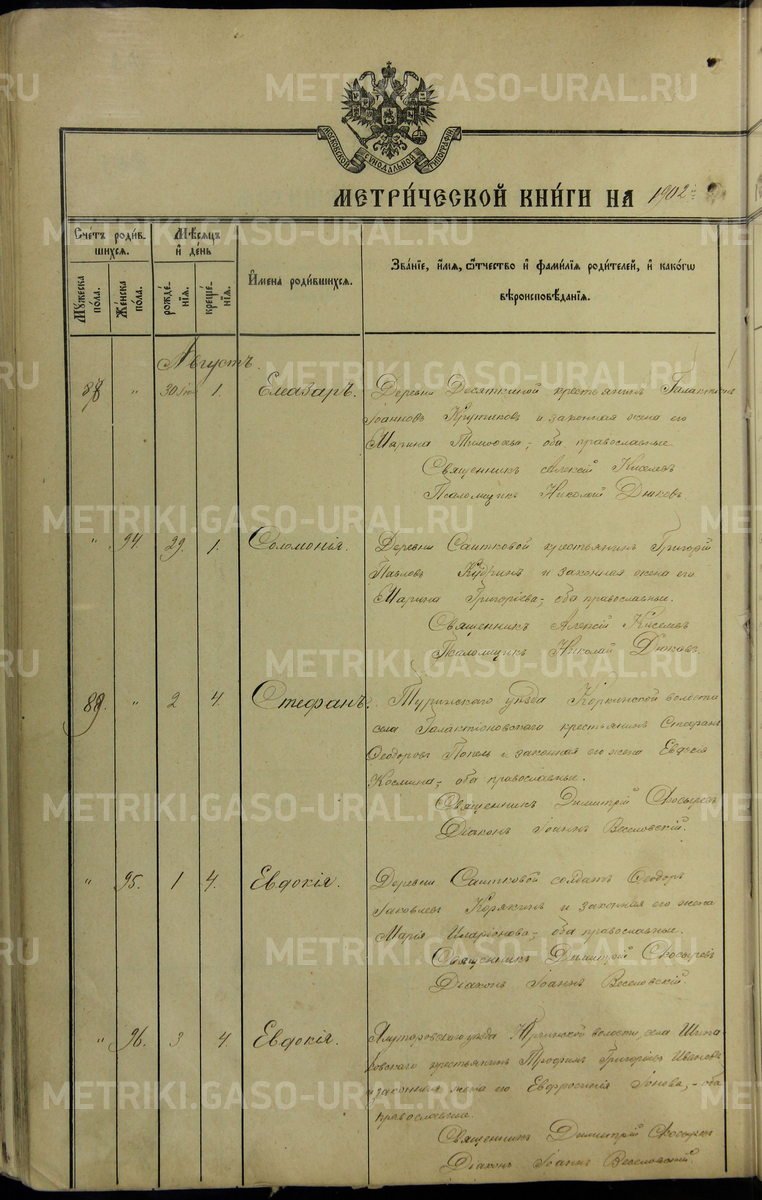 METRIKI.GASO-URAL.RU
МОСКОВСКОЙ СѴНОДАЛЬНОЙ ТИПОГРАФІИ
МЕТРИ́ЧЕСКОЙ КНИ́ГИ НА 1902
Сче́тъ роди́в-шихся.
Му́жеска по́ла.
Же́нска по́ла.
Мѣ́сяцъ и де́нь
рожде́нїя.
креще́нїя.
Имена роди́вшихся.
Зва́нїе, и́мя, ѻ҆́тчество и фами́лїя роди́телей, и како́гѡ
вѣроисповѣ́данїя.
Августъ.
88 " 30 1. Елеазаръ.
Деревни крестьянинъ Галактіонъ
Іоанновъ Крутиковъ и законная жена его
Марина Тимофеева, оба православные
Священникъ Алексій Киселевъ
Псаломщикъ Николай
" 94. 29 1. Соломонія.
Деревни Саитковой крестьянинъ Григорій
Павловъ и законная жена его
Марина Григоріева, оба православные.
Священникъ Алексій Киселевъ
Псаломщикъ Николай
89. " 2 4. Стефанъ.
Туринскаго уѣзда Коркинской волости
села Галактіоновскаго крестьянинъ Стефанъ
Феодоровъ и законная его жена Евдокія
Космина, оба православные.
Священникъ Димитрій
Діаконъ Іоаннъ Веселовскій.
" 95. 1 4. Евдокія.
Деревни Саитковой солдатъ Феодоръ
Іаковлевъ Корякинъ и законная его жена
Марія Иларіонова, оба православные.
Священникъ Димитрій
Діаконъ Іоаннъ Веселовскій
" 96. 3 4. Евдокія.
Ялуторовскаго уѣзда волости, села
крестьянинъ Трофимъ Григоріевъ Ивановъ
и законная жена его Евфросинія Іонова, оба
православные.
Священникъ Димитрій
Діаконъ Іоаннъ Веселовскій.